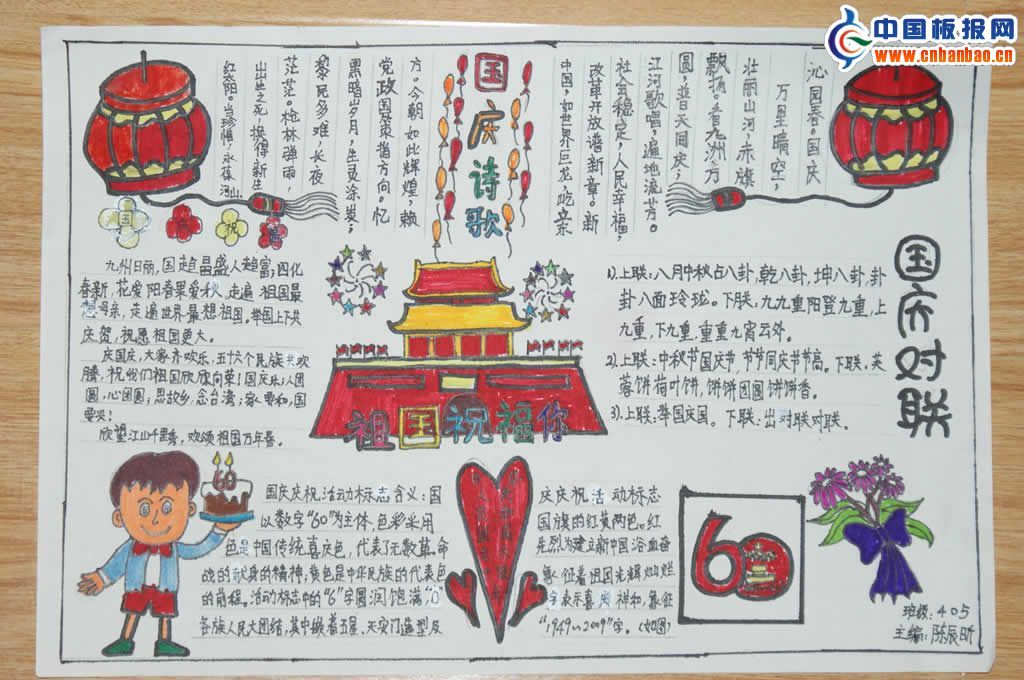 中国板报网
www.cnbanbao.cn
沁园春·国庆
万里晴空,
壮丽山河,赤旗
飘扬。看九洲方
圆,普天同庆;
江河歌唱,遍地流芳。
社会稳定,人民幸福,
改革开放谱新章。新
中国,如世界巨龙,屹立东
国庆诗歌
方。今朝如此辉煌,赖
党政国策指方向。忆
黑暗岁月,生灵涂炭;
黎民多难,长夜
茫茫。枪林弹雨,
出生之死,换得新生
红艳阳。当珍惜,永葆河山
国
祝
九州日丽,国趋昌盛人趋富;四化
春新,花爱阳春果爱秋。走遍祖国最
想母亲,走遍世界最想祖国。举国上下共
庆贺,祝愿祖国更大。
庆国庆,大家齐欢乐,五十六个民族共欢
腾,祝我们祖国欣欣向荣!国庆乐;人团
圆,心团圆;思故乡,念台湾;家要和,国
要哭!
欣望江山千里秀,欢颂祖国万年春。
祖国祝福你
国庆对联
1).上联:八月中秋占八卦,乾八卦,坤八卦,卦
卦八面玲珑。下联.九九重阳登九重,上
九重,下九重,重重九宵云外。
2).上联:中秋节国庆节,节节同庆节节高。下联.芙
蓉饼荷叶饼,饼饼团圆饼饼香。
3).上联:举国庆国。下联:出对联对联。
60
国庆庆祝活动标志含义:国
以数字“60”为主体,色彩采用
色是中国传统喜庆色,代表了无数革命
战的献身的精神;黄色是中华民族的代表色
的前程。活动标志中的“6”字圆润饱满“0”
各族人民大团结,其中嵌着五星、天安门造型及
庆庆祝活动标志
国旗的红黄两色。红
先烈为建立新中国浴血奋
象征着祖国光辉灿烂
字表示喜庆祥和,象征
“1949~2009”字。(如图)
60
班级:405
主编:陈辰昕